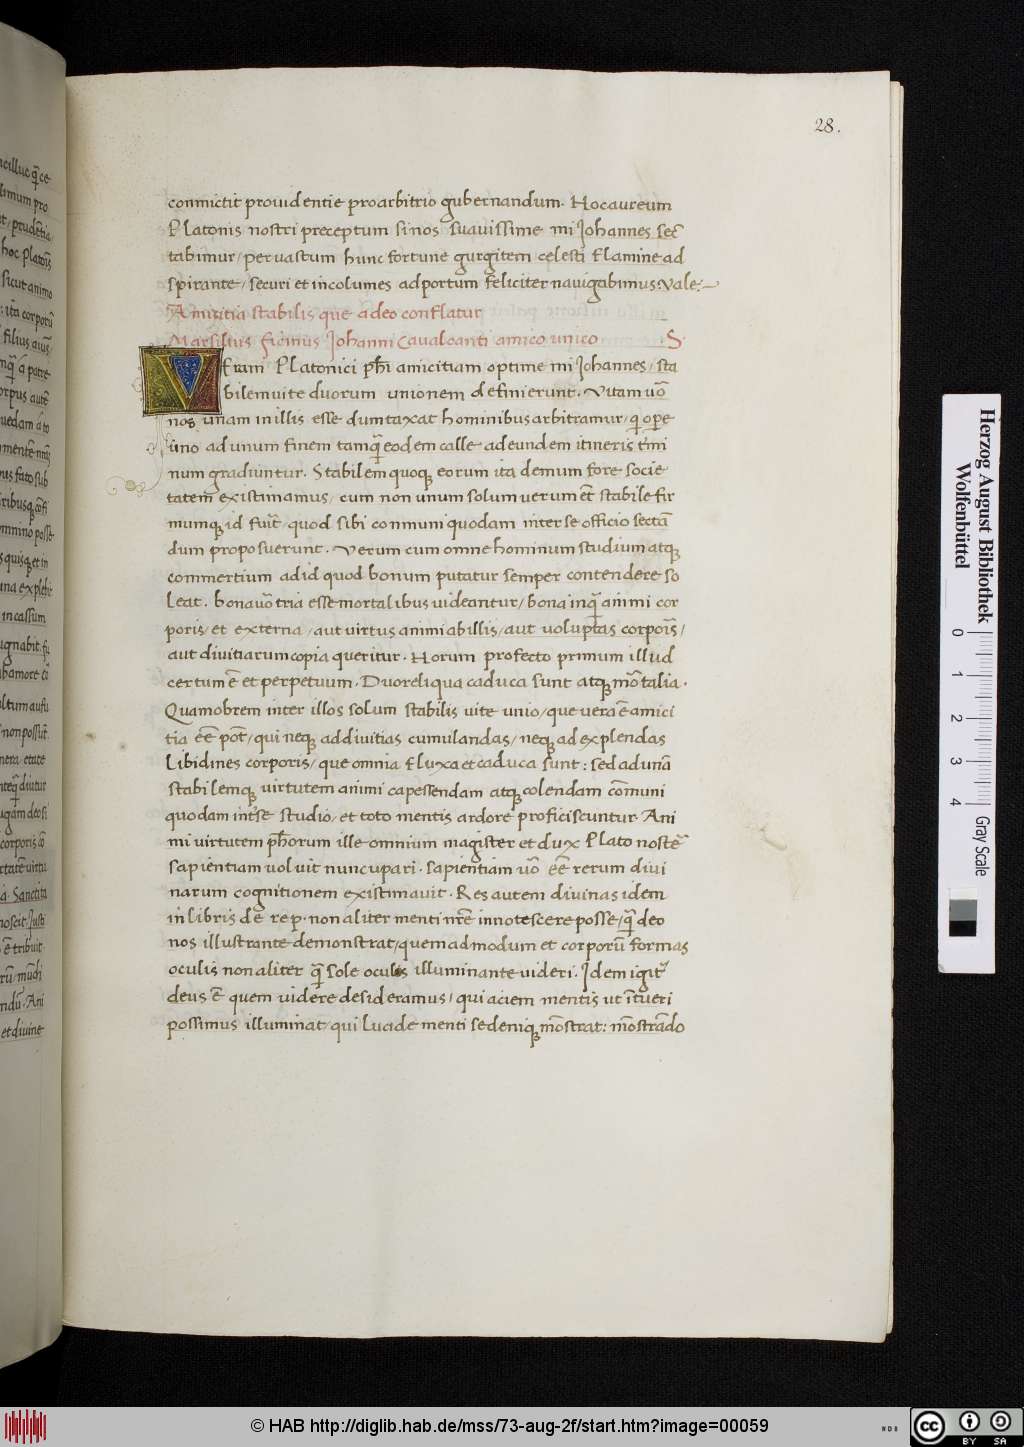 28.
conmictit providentie proarbitrio gubernandum. Hocaureum
Platonis nostri preceptum sinos suavissime mi Johannes sec̄
tabimur / pervastum hunc fortune gurgitem celesti flamine ad
spirante / securi et incolumes adportum feliciter navigabimus. Vale:
Amicitia stabilis que adeo conflatur
Marsilius ficinus Johanni Cavalcanti amico unico .S.
Vram Platonici ph̄i amicitiam optime mi Johannes / sta
bilem vite duorum unionem definierunt. Vitam uō
nos unam in illis esse dumtaxat hominibus arbitramur / qi ope
uno ad unum finem tamq̄ eodem calle adeundem itineris tmi
num gradiuntur. Stabilem quoqȝ eorum ita demum fore socie
tatem existimamus / cum non unum solum verum et̄ stabile fir
mumqȝ id fuit̄ / quod sibi communi quodam inter se officio sectā
dum proposuerunt. Verum cum omne hominum studium atqȝ
commertium ad id quod bonum putatur semper contendere so
leat. bona uō tria esse mortalibus videantur / bona inq̄ animi cor
poris / et externa / aut virtus animi ab illis / aut voluptas corpoīs /
aut divitiarum copia queritur. Horum profecto primum illud
certum ē et perpetuum. Duo reliqua caduca sunt atqȝ mōtalia.
Quamobrem inter illos solum stabilis vite unio / que vera ē amici
tia eē pōt / qui neqȝ ad divitias cumulandas / neqȝ ad explendas
libidines corporis / que omnia fluxa et caduca sunt: sed ad unā
stabilemqȝ virtutem animi capessendam atqȝ colendam cōmuni
quodam int̄se studio / et toto mentis ardore proficiscuntur. Ani
mi virtutem ph̄orum ille omnium magister et dux Plato nostē
sapientiam voluit nuncupari. sapientiam uō eē rerum divi
narum cognitionem existimavit. Res autem divinas idem
in libris de rep. non aliter menti nr̄e innotescere posse / q̄ deo
nos illustrante demonstrat / quemadmodum et corporū formas
oculis non aliter q̄ sole oculis illuminante videri. Idem igit̄
deus ē quem videre desideramus / qui aciem mentis ut ītueri
possimus illuminat / qui lucide menti se deniqȝ mōstrat: mōstrādo
Herzog August Bibliothek
Wolfenbüttel
0 1 2 3 4 Gray Scale
© HAB http://diglib.hab.de/mss/73-aug-2f/start.htm?image=00059
WDB
cc BY SA